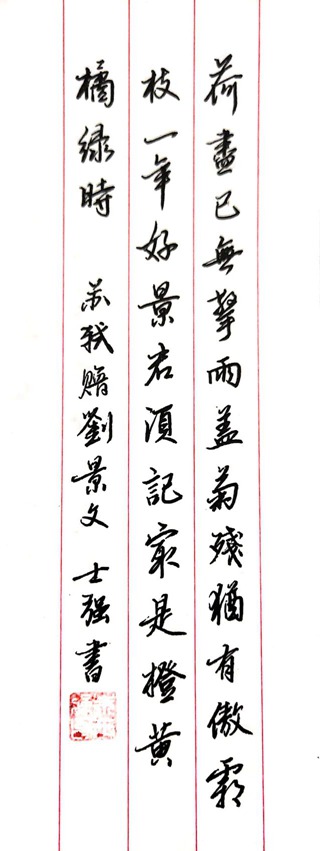 荷盡已無擎雨蓋菊殘猶有傲霜
枝一年好景君須記最是橙黄
橘緑時 苏軾贈劉景文 士强書